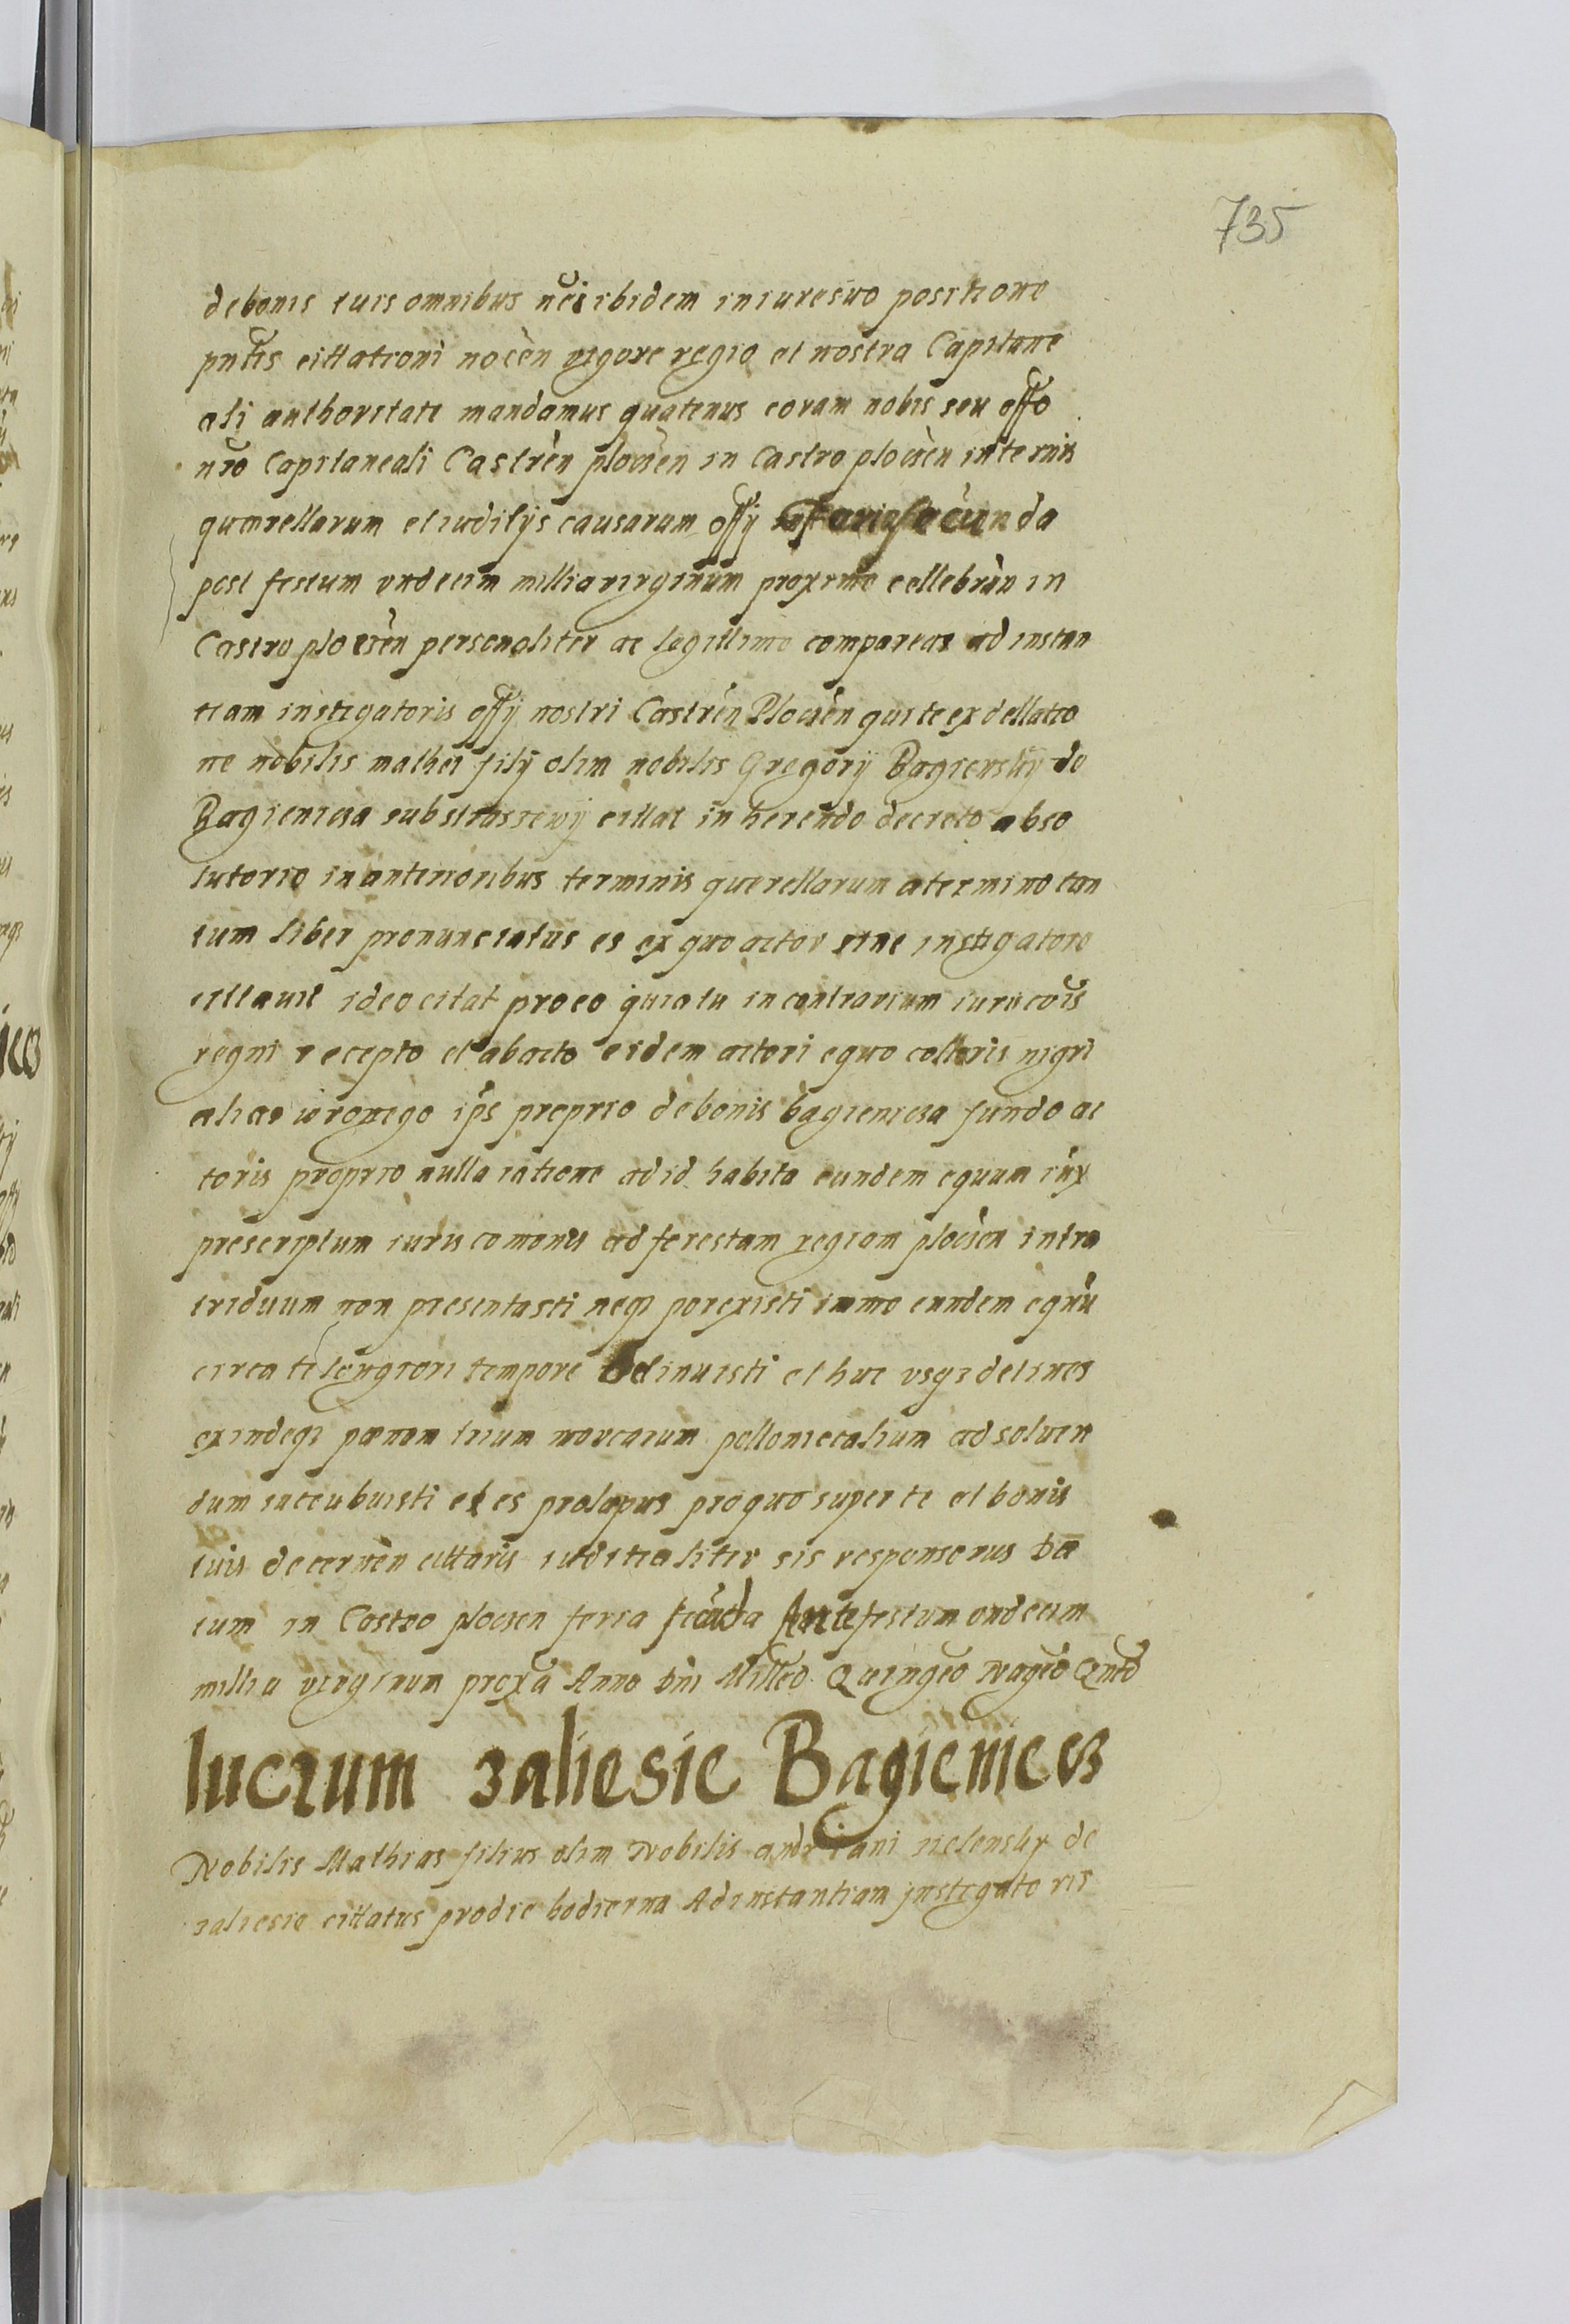 735
de bonis tuis omnibus nëis ibidem in iure suo positione
pntis cittationi nocèn vigore regio et nostra Capitane
ali authoritate mandamus quatenus coram nobis seu offo
nro Capitaneali Castrèn plocèn in Castro plocèn in termis
quærellarum et iuditijs causarum offij feria secunda
post festum vndecim millia virginum proxime cellebràn in
Castro plocèn personaliter ac legittime compareas ad instan
tiam instigatoris offij nostri Castrèn Plocèn qui te ex dellatio
ne nobilis mathei filij olim nobilis Gregorij Bagienskij de
Bagienicza cittat in herendo decreto abso
lutorio in anterioribus terminis querellarum a termino tan
tum liber pronunciatus es ex quo actor sine instigatore
cittauit ideo citat pro eo quia tu in contrarium iuris cois
regni recepto et abacto eidem actori equo colloris nigri
alias wronego ips proprio de bonis bagienicza fundo ac
toris proprio nulla ratione ad id habita eundem equum iux
prescriptum iuris comonis ad ferestam regiam plocèn intra
triduum non presentasti neqз porexisti immo eundem equù
circa te longiori tempore detinuisti et huc vsqз detines
exindeqз pænam trium marcarum pollonicalium ad soluen
dum succubuisti et es prolapsus pro quo super te et bonis
tuis decernèn cittaris iuditialiter sis responsorus Da
tum in Castro plocèn feria scùda Ante festum ondecim
millia virginum proxa Anno Dni Milleo Quingeo Nageo Qnto
lucrum zaliesie Bagienice
Nobilis Mathias filius olim Nobilis andriani zielenskij de
zaliesie cittatus pro die hodierna Ad instantiam jnstigatoris